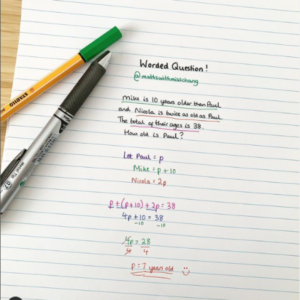 Worded Question!
@mathswithmisschang
Mike is 10 years older than Paul
and Nicola is twice as old as Paul.
The total of their ages is 38.
How old is Paul?
Let Paul = p
Mike = p + 10
Nicola = 2p
p + (p+10) + 2p = 38
4p + 10 = 38
-10 -10
4p = 28
4 4
p = 7 years old
STABILO